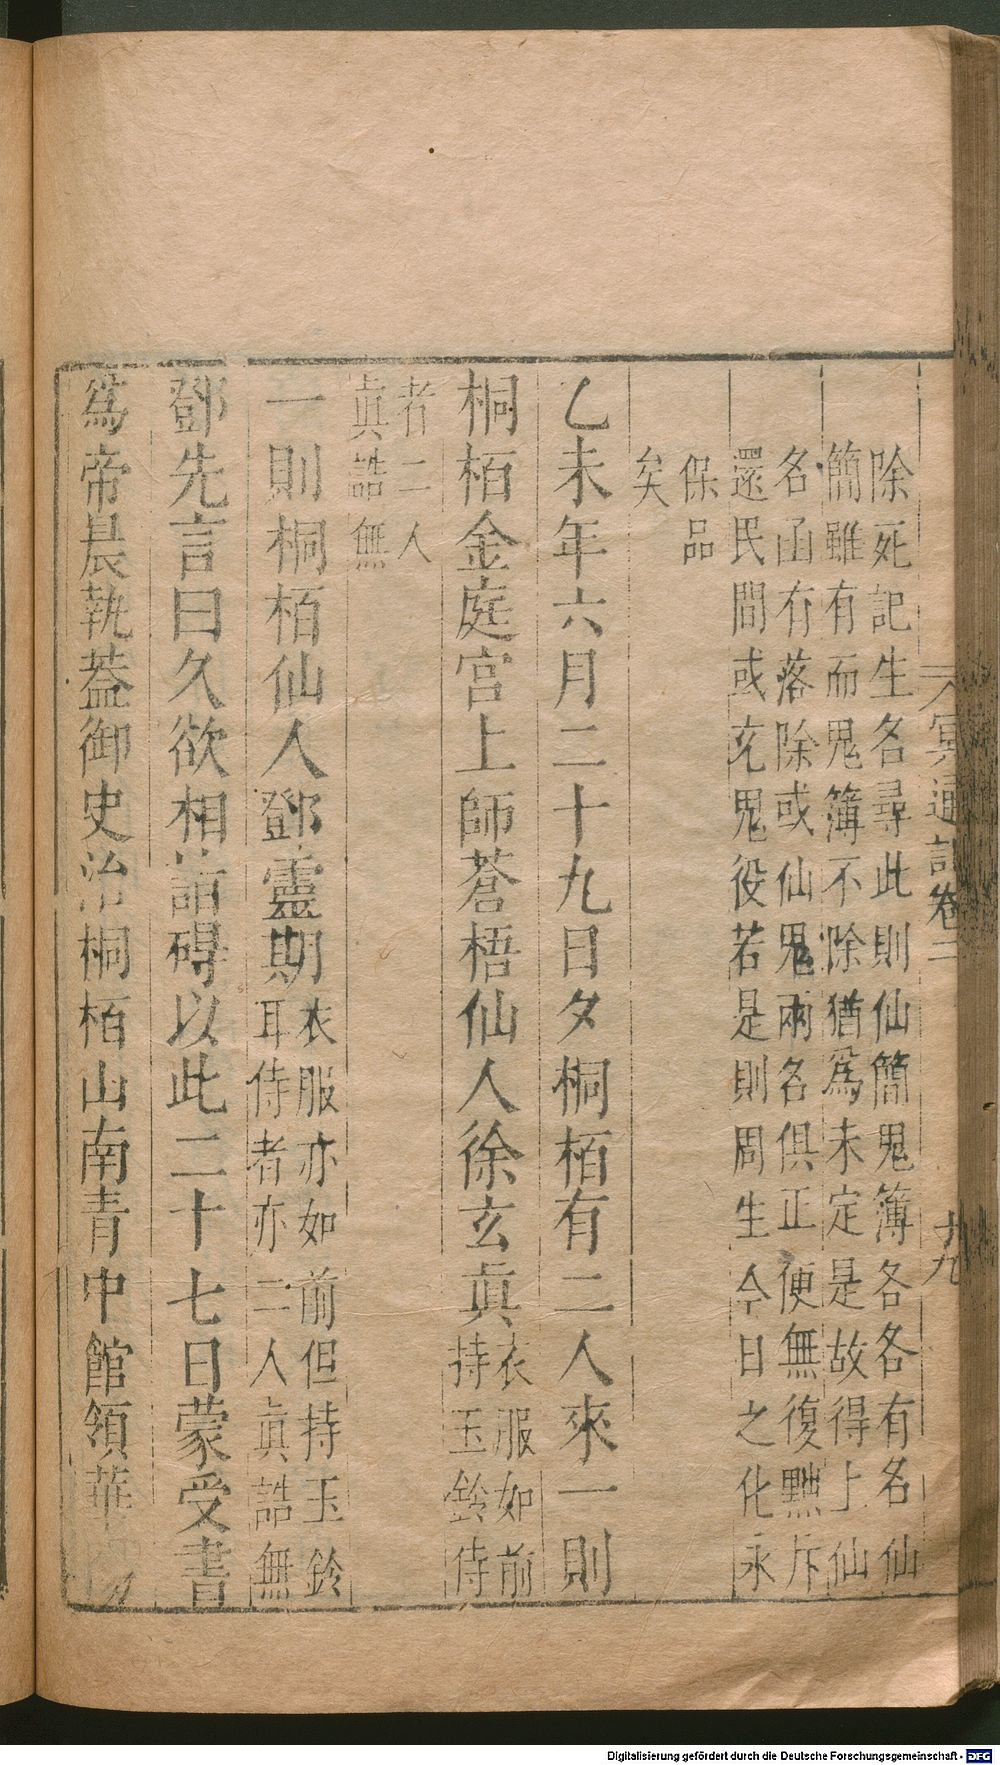 冥通記卷二
十九
除死記生名尋此則仙簡鬼簿各各有名仙
簡雖有而鬼簿不除猶為未定是故得上仙
名函有落除或仙鬼兩名俱正便無復黜斥
還民間或充鬼役若是則周生今日之化永
保品
矣
乙未年六月二十九日夕桐栢有二人來一則
桐栢金庭宮上師蒼梧仙人徐玄眞衣服如前
持玉鈴侍
者二人
眞誥無
一則桐栢仙人鄧靈期衣服亦如前但持玉鈴
耳侍者亦二人眞誥無
鄧先言曰久欲相詣碍以此二十七日蒙受書
為帝晨執蓋御史治桐栢山南青中館領華
Digitalisierung gefördert durch die Deutsche Forschungsgemeinschaft - DFG